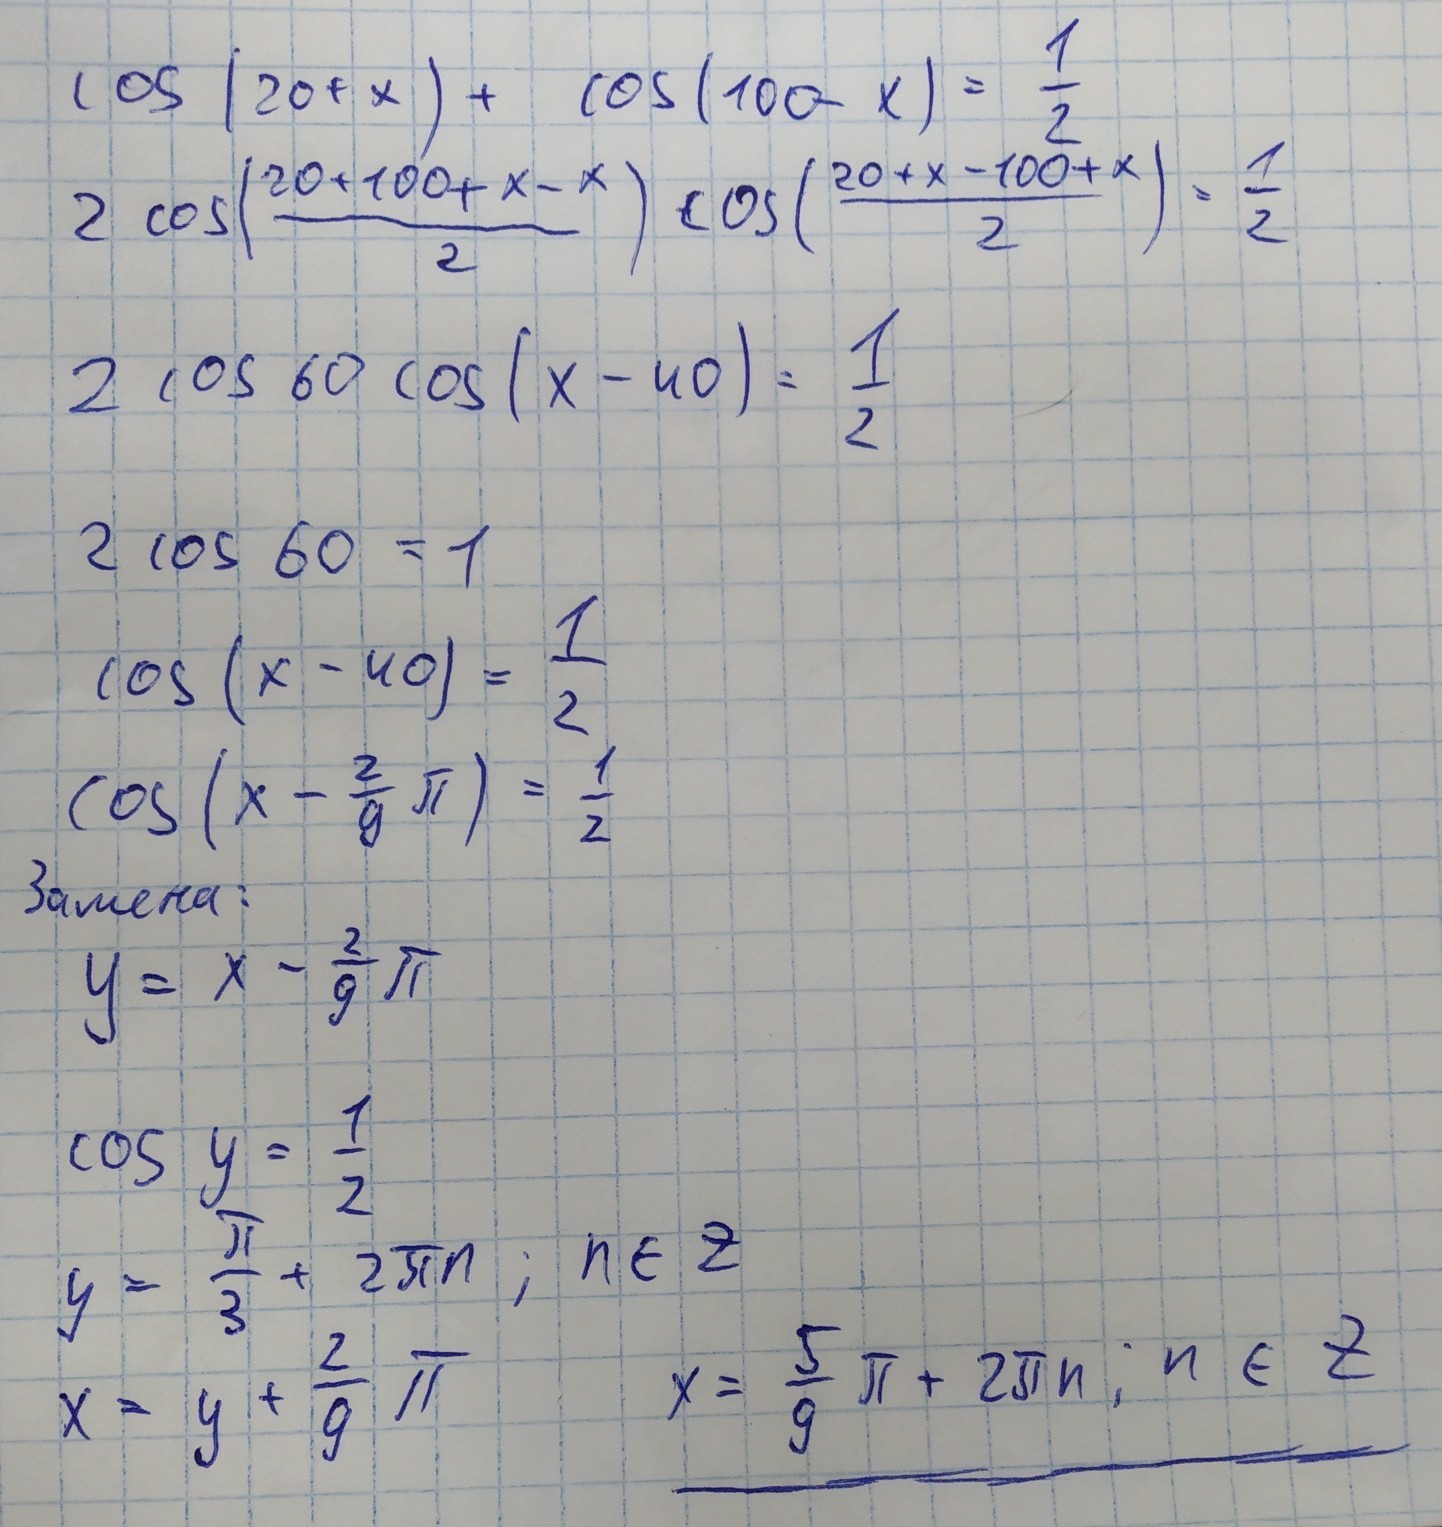 cos (20+x) + cos(100-x) = 1/2
2 cos((20+100+x-x)/2) cos((20+x-100+x)/2) = 1/2
2 cos 60 cos(x-40) = 1/2
2 cos 60 = 1
cos(x-40) = 1/2
cos(x - 2/9 π) = 1/2
Замена:
y = x - 2/9 π
cos y = 1/2
y = π/3 + 2πn ; n ∈ Z
x = y + 2/9 π x = 5/9 π + 2πn ; n ∈ Z